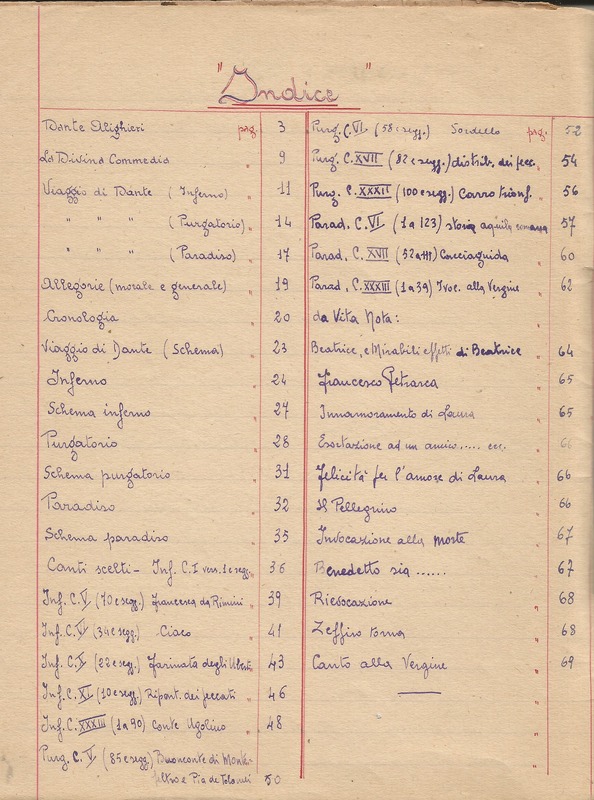 "Indice"
Dante Alighieri pag. 3
La Divina Commedia " 9
Viaggio di Dante (Inferno) " 11
" " " (Purgatorio) " 14
" " " (Paradiso) " 17
Allegorie (morale e generale) " 19
Cronologia " 20
Viaggio di Dante (Schema) " 23
Inferno " 24
Schema inferno " 27
Purgatorio " 28
Schema purgatorio " 31
Paradiso " 32
Schema paradiso " 35
Canti scelti - Inf. C. I vers. 1 e segg. " 36
Inf. C. V (70 e segg.) Francesca da Rimini " 39
Inf. C. VI (34 e segg.) Ciaco " 41
Inf. C. X (22 e segg.) Farinata degli Uberti " 43
Inf. C. XI (10 e segg.) Ripart. dei peccati " 46
Inf. C. XXXIII (1 a 90) Conte Ugolino " 48
Purg. C. V (85 e segg.) Buonconte di Monte-
feltro e Pia de Tolomei 50
Purg. C. VI (58 e segg.) Sordello pag. 52
Purg. C. XVII (82 e segg.) distrib. dei pecc. " 54
Purg. C. XXXII (100 e segg.) Carro trionf. " 56
Parad. C. VI (1 a 123) storia aquila romana 57
Parad. C. XVII (52 a 111) Cacciaguida " 60
Parad. C. XXXIII (1 a 39) Ivoc. alla Vergine " 62
da Vita Nota:
Beatrice, e Mirabili effetti di Beatrice " 64
Francesco Petrarca " 65
Innamoramento di Laura " 65
Esortazione ad un amico..... ecc. " 66
Felicità per l'amore di Laura " 66
Il Pellegrino " 66
Invocazione alla morte " 67
Benedetto sia ...... " 67
Rievocazione " 68
Zeffiro torna " 68
Canto alla Vergine " 69